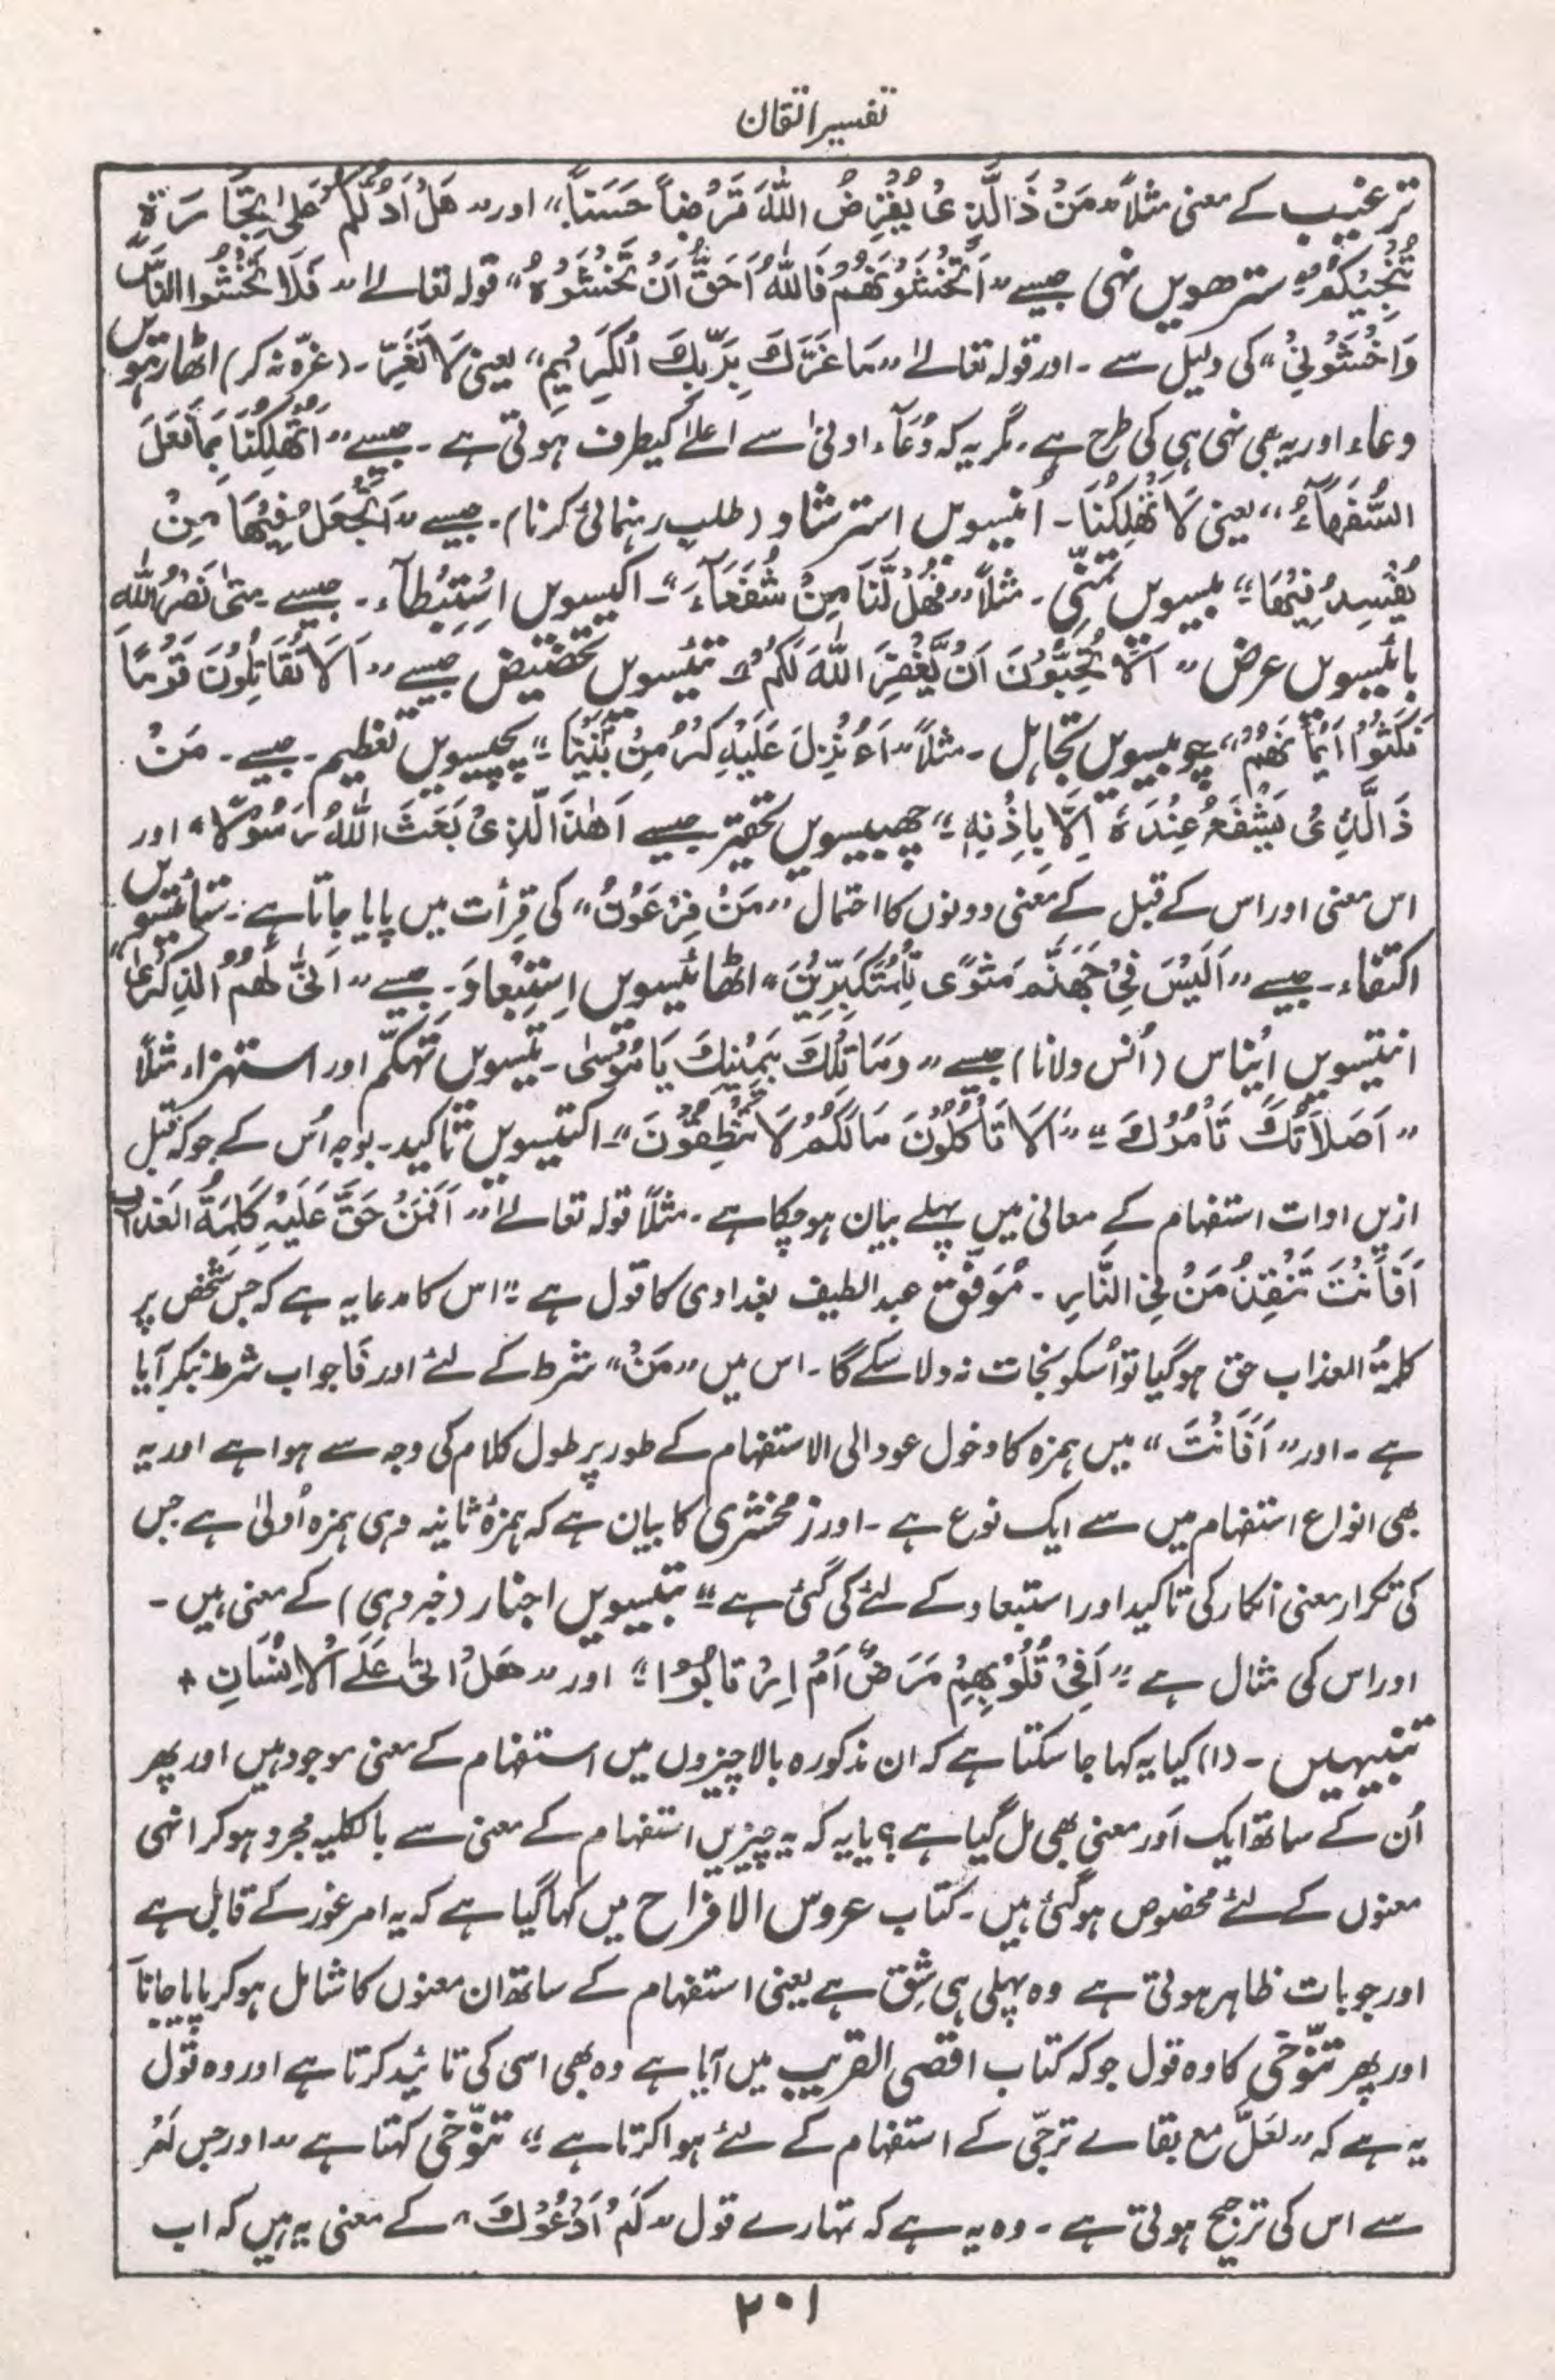 تفسیر اتقان
ترغیب کے معنی مثلاً ”مَنْ ذَالَّذِیْ یُقْرِضُ اللّٰہَ قَرْضاً حَسَناً“ اور ”ھَلْ اَدُلُّکُمْ عَلیٰ تِجَارَۃٍ
تُنْجِیْکُمْ“ سترھویں نہی جیسے ”اَتَخْشَوْنَھُمْ فَاللّٰہُ اَحَقُّ اَنْ تَخْشَوْہُ“ قولہ تعالےٰ ”فَلَا تَخْشَوُا النَّاسَ
وَاخْشَوْنِیْ“ کی دلیل سے ۔ اور قولہ تعالےٰ ”مَا غَرَّکَ بِرَبِّکَ الْکَرِیْمِ“ یعنی لَا تَغْتَرّ ۔ (غرّہ نہ کر) اٹھارھویں
دعاء اور یہ بھی نہی ہی کی طرح ہے ۔ مگر یہ کہ دُعَآء ادنیٰ سے اعلےٰ کیطرف ہوتی ہے ۔ جیسے ”اَتُھْلِکُنَا بِمَا فَعَلَ
السُّفَھَآءُ“ یعنی لَا تُھْلِکْنَا ۔ اُنیسویں استرشاد (طلب رہنمائی کرنا) ۔ جیسے ”اَتَجْعَلُ فِیْھَا مِنْ
یُفْسِدُ فِیْھَا“ بیسویں تمنّی ۔ مثلاً ”فَھَلْ لَّنَا مِنْ شُفَعَآءَ“ ۔ اکیسویں اِسْتِبْطآء ۔ جیسے مَتیٰ نَصْرُ اللّٰہِ
بائیسویں عرض ”اَلَا تُحِبُّوْنَ اَنْ یَّغْفِرَ اللّٰہُ لَکُمْ“ تئیسویں تحضیض جیسے ”اَلَا تُقَاتِلُوْنَ قَوْمًا
نَکَثُوْا اَیْمَانَھُمْ“ چوبیسویں تجاہل ۔ مثلاً ”اَءُنْزِلَ عَلَیْہِ الذِّکْرُ مِنْ بَیْنِنَا“ پچیسویں تعظیم ۔ جیسے ۔ مَنْ
ذَالَّذِیْ یَشْفَعُ عِنْدَہٗ اِلَّا بِاِذْنِہٖ“ چھبیسویں تحقیر جیسے اَھٰذَا الَّذِیْ بَعَثَ اللّٰہُ رَسُوْلاً“ اور
اس معنی اور اس کے قبل کے معنی دونوں کا احتمال ”مَنْ فِرْعَوْنُ“ کی قِرأت میں پایا جاتا ہے ۔ ستائیسویں
اکتفاء ۔ جیسے ”اَلَیْسَ فِیْ جَھَنَّمَ مَثْوًی لِّلْمُتَکَبِّرِیْنَ“ اٹھائیسویں اِسْتِبْعاد ۔ جیسے ”اَنّٰی لَھُمُ الذِّکْرٰی“
انتیسویں ایْناس (اُنس دلانا) جیسے ”وَمَا تِلْکَ بِیَمِیْنِکَ یَا مُوْسٰی ۔ تیسویں تَہکّم اور استہزاء مثلاً
”اَصَلاَتُکَ تَأمُرُکَ“ ”اَلَا تَأکُلُوْنَ مَالَکُمْ لَا تَنْطِقُوْنَ“ ۔ اکتیسویں تاکید ۔ بوجہ اُس کے جو کہ قبل
ازیں ادات استفہام کے معانی میں پہلے بیان ہوچکا ہے ۔ مثلاً قولہ تعالےٰ ”اَفَمَنْ حَقَّ عَلَیْہِ کَلِمَۃُ العَذَابِ
اَفَأَنْتَ تُنْقِذُ مَنْ فِی النَّارِ ۔ مُوَفّق عبداللطیف بغدادی کا قول ہے ”اس کا مدعا یہ ہے کہ جس شخص پر
کلمۃُ العذاب حق ہوگیا تو اُسکو نجات نہ دلا سکے گا ۔ اس میں ”مَنْ“ شرط کے لئے اور فَا جواب شرط بنکر آیا
ہے ۔ اور ”اَفَاَنْتَ“ میں ہمزہ کا دخول عود الی الاستفہام کے طور پر طول کلام کی وجہ سے ہوا ہے اور یہ
بھی انواع استفہام میں سے ایک نوع ہے ۔ اور زمخشری کا بیان ہے کہ ہمزۂ ثانیہ وہی ہمزہ اُولیٰ ہے جس
کی تکرار معنی انکار کی تاکید اور استبعاد کے لئے کی گئی ہے“ بتیسویں اخبار (خبر دہی) کے معنی ہیں ۔
اور اس کی مثال ہے ”اَفِیْ قُلُوْبِھِمْ مَرَضٌ اَمْ اِرْتَابُوْا“ اور ”ھَلْ اَتٰی عَلَے الْاِنْسَانِ +
تنبیہیں ۔ (۱) کیا یہ کہا جاسکتا ہے کہ ان مذکورہ بالا چیزوں میں استفہام کے معنی موجود ہیں اور پھر
اُن کے ساتھ ایک اَور معنی بھی مل گیا ہے ؟ یا یہ کہ یہ چیزیں استفہام کے معنی سے بالکلیہ مجرد ہوکر انہی
معنوں کے لئے مخصوص ہوگئی ہیں ۔ کتاب عروس الافراح میں کہا گیا ہے کہ یہ امر غور کے قابل ہے
اور جو بات ظاہر ہوتی ہے وہ پہلی ہی شِق ہے یعنی استفہام کے ساتھ ان معنوں کا شامل ہوکر پایا جاناَ
اور پھر تنّوخی کا وہ قول جو کہ کتاب اقصی القریب میں آیا ہے وہ بھی اسی کی تائید کرتا ہے اور وہ قول
یہ ہے کہ ”لعَلَّ مع بقاے ترجّی کے استفہام کے لئے ہوا کرتا ہے“ تنّوخی کہتا ہے ”اور جس اَمْر
سے اس کی ترجیح ہوتی ہے ۔ وہ یہ ہے کہ تمہارے قول ”کَمْ اَدْعُوْکَ“ کے معنی یہ ہیں کہ اب
۲۰۱